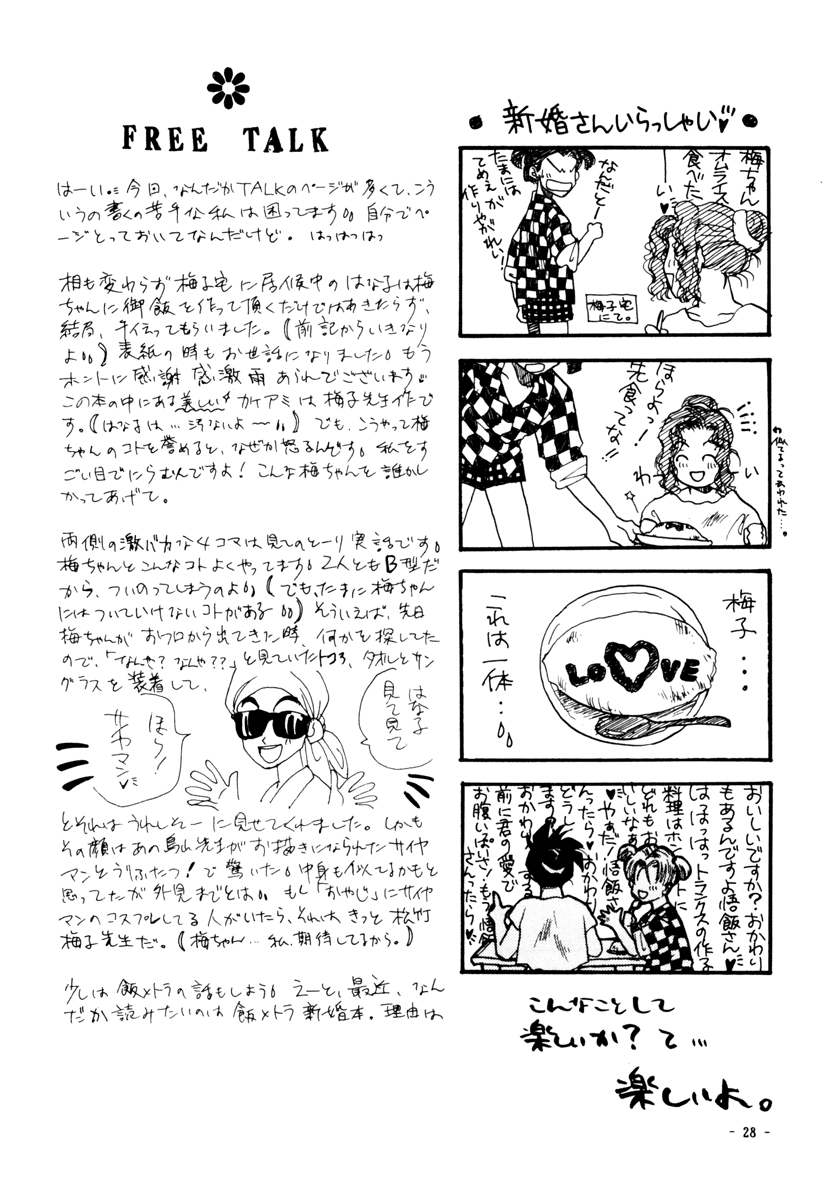 FREE TALK
はーい。今回、なんだかTALKのページが多くて、こう
いうの書くの苦手な私は困ってます。自分でペ
ージとっておいてなんだけど。はっはっはっ
相も変わらず梅子宅に居候中のはな子は梅
ちゃんに御飯を作って頂くだけではあきたらず、
結局、手伝ってもらいました。(前記からいきなり
よ。)表紙の時もお世話になりました。もう
ホントに感謝感激雨あられでございます。
この本の中にある美しいカケアミは梅子先生作で
す。(はなるは…汚ないよ〜。)でも、こうやって梅
ちゃんのコトを誉めると、なぜか怒るんです。私をす
ごい目でにらむんですよ!こんな梅ちゃんを誰かし
かってあげて。
両側の激バカな4コマは見てのとーり実話です。
梅ちゃんとこんなコトよくやってます。2人ともB型だ
から、ついのってしまうのよ。(でも、たまに梅ちゃん
にはついていけないコトがある。)そういえば、先日
梅ちゃんがおフロから出てきた時、何かを探してた
ので、「なんや?なんや??」と見ていたトコロ、タオルとサン
グラスを装着して、
はな子
見て見て
ほら!
サイヤマン♥
とそれはうれしそーに見せてくれました。しかも
その顔はあの鳥山先生がお描きになられたサイヤ
マンとうりふたつ!で驚いた。中身も似てるかもと
思ってたが外見までとは。もし「おやじ」にサイヤ
マンのコスプレしてる人がいたら、それはきっと松竹
梅子先生だ。(梅ちゃん…私、期待してるから。)
少しは飯×トラの話もしよう。えーと、最近、なん
だか読みたいのは飯×トラ新婚本。理由は
● 新婚さんいらっしゃい♥ ●
梅ちゃん
オムライス
食べた
ーい
なんだとー
たまには
てめぇが
作りやがれい
梅子宅
にて。
ほらよっ!
先食ってな!!
わーい
梅子…
これは一体…。
LOVE
おいしいですか?おかわり
もあるんですよ悟飯さん♥
はっはっはっトランクスの作る
料理はホントに
どれもお
いしいなぁ
やぁだ!悟飯さ
んったら♥おかわり
どうし
ますの
おかわりする
前に君の愛で
お腹いっぱいさ!もう悟飯
さんったら♥
こんなことして
楽しいか?て…
楽しいよ。
- 28 -